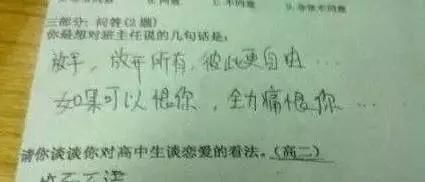 三部分：问答(2题)
你最想对班主任说的几句话是：
放手，放开所有，彼此更自由…
如果可以恨你，全力痛恨你…
请你谈谈你对高中生谈恋爱的看法。(高二)